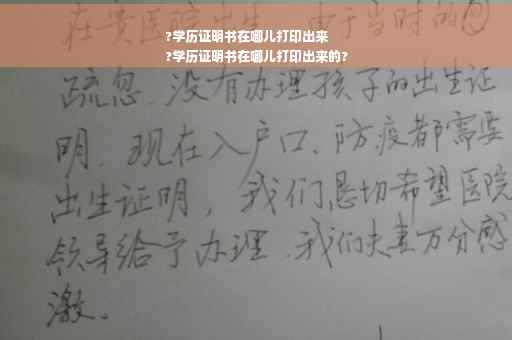 ?学历证明书在哪儿打印出来
?学历证明书在哪儿打印出来的?
在贵医院出生,由于当时的
疏忽.没有办理孩子的出生证
明.现在入户口、防疫都需要
出生证明,我们恳切希望医院
领导给予办理.我们夫妻万分感
激。